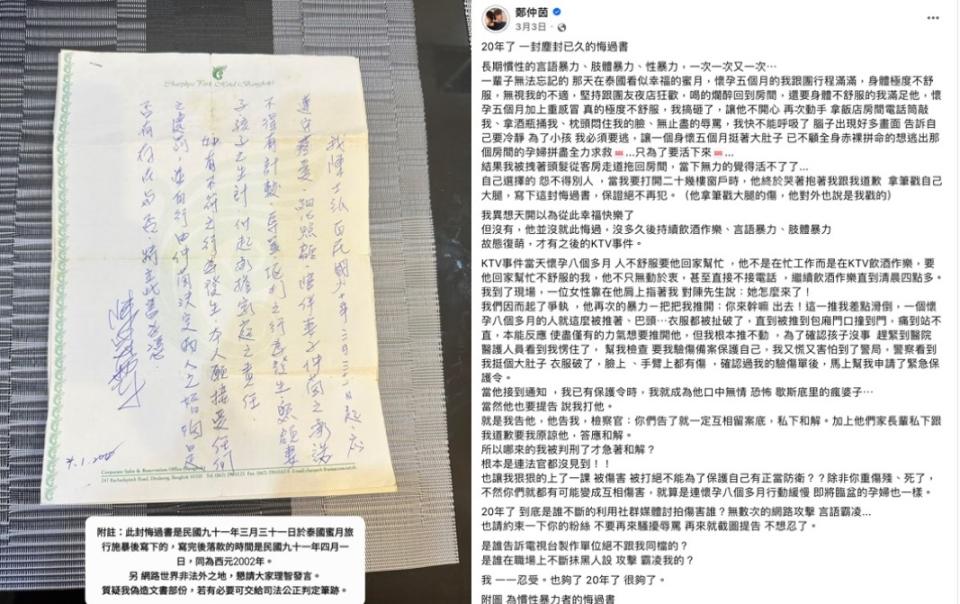 Chaophya Park Hotel Bangkok
遵守善意、細心照顧、陪伴妻子仲茵之承諾
子孩子之生計，付起承擔家庭之責任。
如有不符之行為發生，本人願接受任何
之處罰，並自行由仲茵決定兩人之婚姻是
否有存在與否，特立此書為憑
Corporate Sales & Reservation Office
247 Rachadapisek Road, Dindaeng, Bangkok 10320
附註：此封悔過書是民國九十一年三月三十一日於泰國蜜月旅
行施暴後寫下的，寫完後落款的時間是民國九十一年四月一
日，同為西元2002年。
另 網路世界非法外之地，懇請大家理智發言。
質疑我偽造文書部份，若有必要可交給司法公正判定筆跡。
鄭仲茵
3月3日
20年了 一封塵封已久的悔過書
長期慣性的言語暴力、肢體暴力、性暴力，一次一次又一次⋯
一輩子無法忘記的 那天在泰國看似幸福的蜜月，懷孕五個月的我跟團行程滿滿，身體極度不舒
服，無視我的不適，堅持跟團友夜店狂歡，喝的爛醉回到房間，還要身體不舒服的我滿足他，懷
孕五個月加上重感冒 真的極度不舒服，我搞砸了，讓他不開心 再次動手 拿飯店房間電話筒敲
我、拿酒瓶捅我、枕頭悶住我的臉、無止盡的辱罵，我快不能呼吸了 腦子出現好多畫面 告訴自
己要冷靜 為了小孩 我必須要逃，讓一個身懷五個月挺著大肚子 已不顧全身赤裸拼命的想逃出那
個房間的孕婦拼盡全力求救⋯只為了要活下來⋯
結果我被拽著頭髮從客房走道拖回房間，當下無力的覺得活不了了⋯
自己選擇的 怨不得別人 ，當我要打開二十幾樓窗戶時，他終於哭著抱著我跟我道歉 拿筆戳自己
大腿，寫下這封悔過書，保證絕不再犯。（他拿筆戳大腿的傷，他對外也說是我戳的）
我異想天開以為從此幸福快樂了
但沒有，他並沒就此悔過，沒多久後持續飲酒作樂、言語暴力、肢體暴力
故態復萌，才有之後的KTV事件。
KTV事件當天懷孕八個多月 人不舒服要他回家幫忙 ，他不是在忙工作而是在KTV飲酒作樂，要
他回家幫忙不舒服的我，他不只無動於衷，甚至直接不接電話 ，繼續飲酒作樂直到清晨四點多。
我到了現場，一位女性靠在他肩上指著我 對陳先生說：她怎麼來了！
我們因而起了爭執，他再次的暴力一把把我推開：你來幹嘛 出去！這一推我差點滑倒，一個懷
孕八個多月的人就這麼被推著、巴頭⋯衣服都被扯破了，直到被推到包廂門口撞到門，痛到站不
直，本能反應 使盡僅有的力氣想要推開他，但我根本推不動 ，為了確認孩子沒事 趕緊到醫院
醫護人員看到我愣住了， 幫我檢查 要我驗傷備案保護自己，我又慌又害怕到了警局，警察看到
我挺個大肚子 衣服破了，臉上 、手臂上都有傷 ，確認過我的驗傷單後，馬上幫我申請了緊急保
護令。
當他接到通知 ，我已有保護令時，我就成為他口中無情 恐怖 歇斯底里的瘋婆子⋯
當然他也要提告 說我打他。
就是我告他，他告我，檢察官：你們告了就一定互相留案底，私下和解。加上他們家長輩私下跟
我道歉要我原諒他，答應和解。
所以哪來的我被判刑了才急著和解？
根本是連法官都沒見到！！
也讓我狠狠的上了一課 被傷害 被打絕不能為了保護自己有正當防衛？？除非你重傷殘、死了，
不然你們就都有可能變成互相傷害，就算是連懷孕八個多月行動緩慢 即將臨盆的孕婦也一樣。
20年了 到底是誰不斷的利用社群媒體討拍傷害誰？無數次的網路攻擊 言語霸凌。
也請約束一下你的粉絲 不要再來騷擾辱罵 再來就截圖提告 不想忍了。
是誰告訴電視台製作單位絕不跟我同檔的？
是誰在職場上不斷抹黑人設 攻擊 霸凌我的？
我 一一忍受。也夠了 20年了 很夠了。
附圖 為慣性暴力者的悔過書